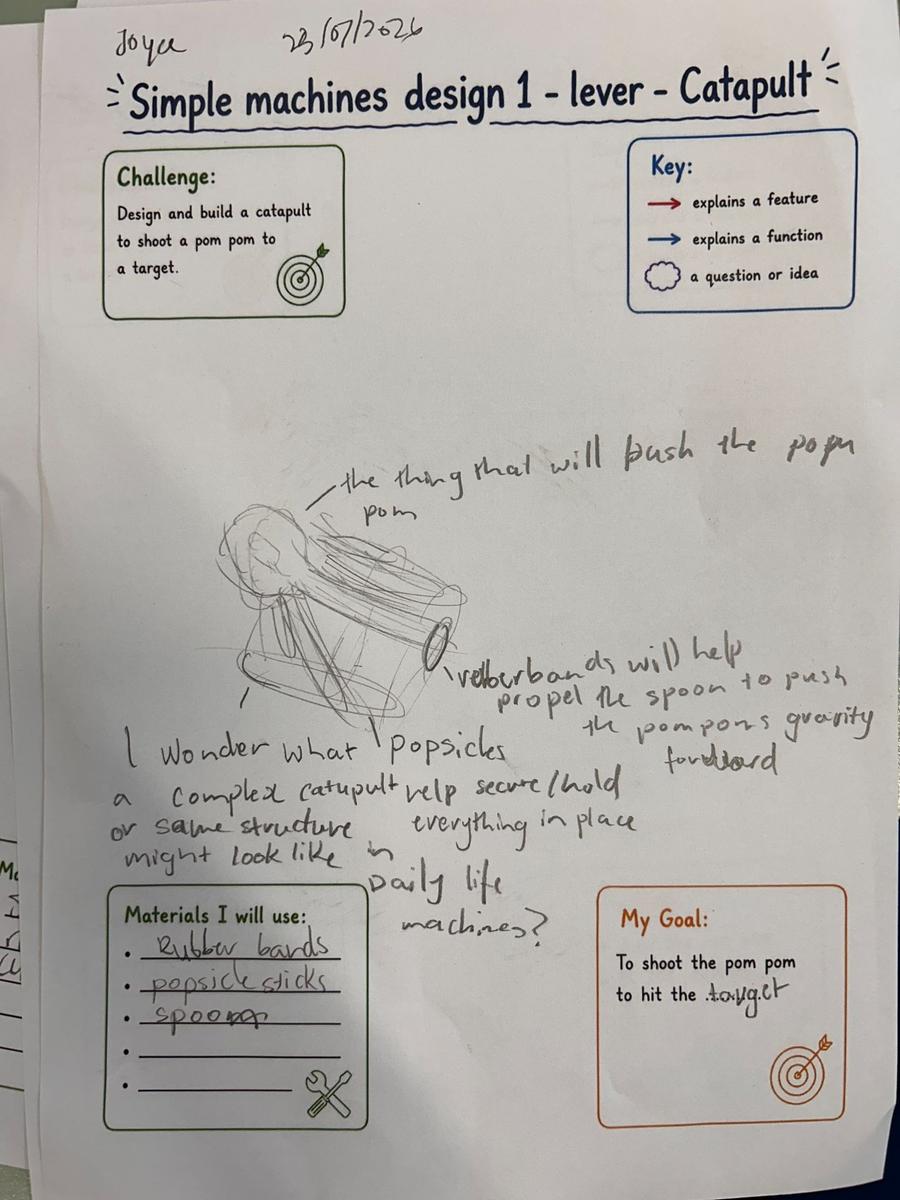 Joyce 23/07/2026
Simple machines design 1 - lever - Catapult
Challenge:
Design and build a catapult
to shoot a pom pom to
a target.
Key:
explains a feature
explains a function
a question or idea
the thing that will push the popm
pom
rubberbands will help
propel the spoon to push
the pompoms gravity
forward
popsicles
help secure/hold
everything in place
I wonder what
a complex catupult
or same structure
might look like in
Daily life
machines?
Materials I will use:
• Rubber bands
• popsicle sticks
• spoon
•
•
My Goal:
To shoot the pom pom
to hit the target